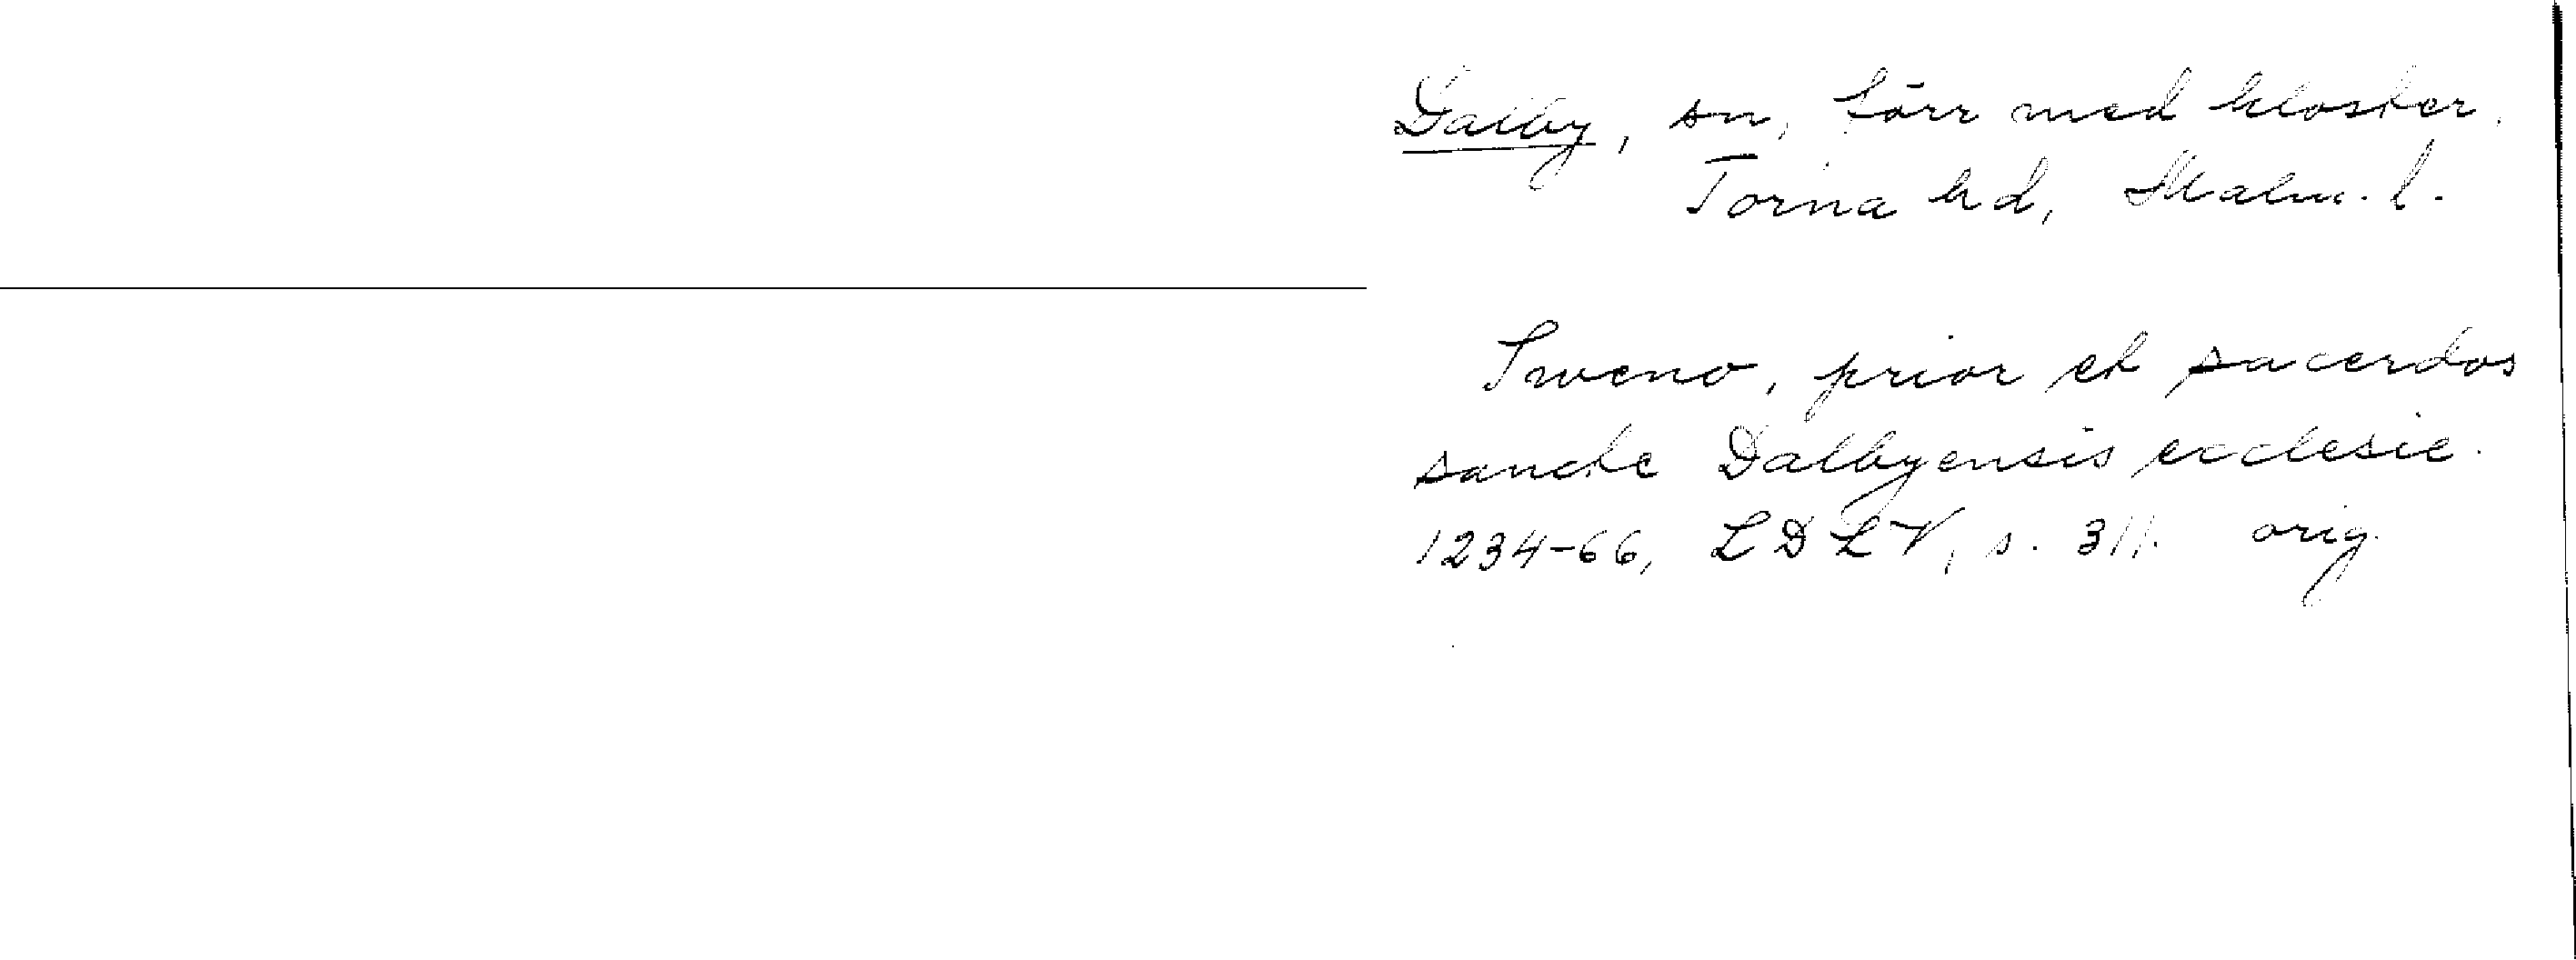 Dalby, sn, förr med kloster.
Torna hd, Malm. l.
Sweno, prior et sacerdos
sancte Dalbyensis ecclesie.
1234-66, LDLV, s. 311. orig.